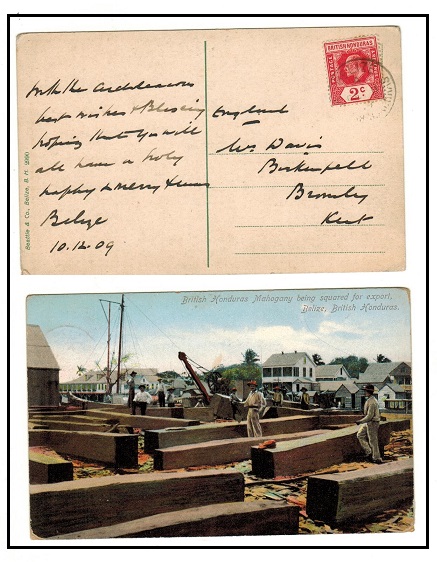 BRITISH HONDURAS
POSTAGE
2c
With the Archdeacons
best wishes & Blessing
hoping that you will
all have a holy
happy & merry Xmas
Belize
10.12.09
England
Davis
Bromley
Kent
Beattie & Co., Belize, B. H.
British Honduras Mahogany being squared for export,
Belize, British Honduras.